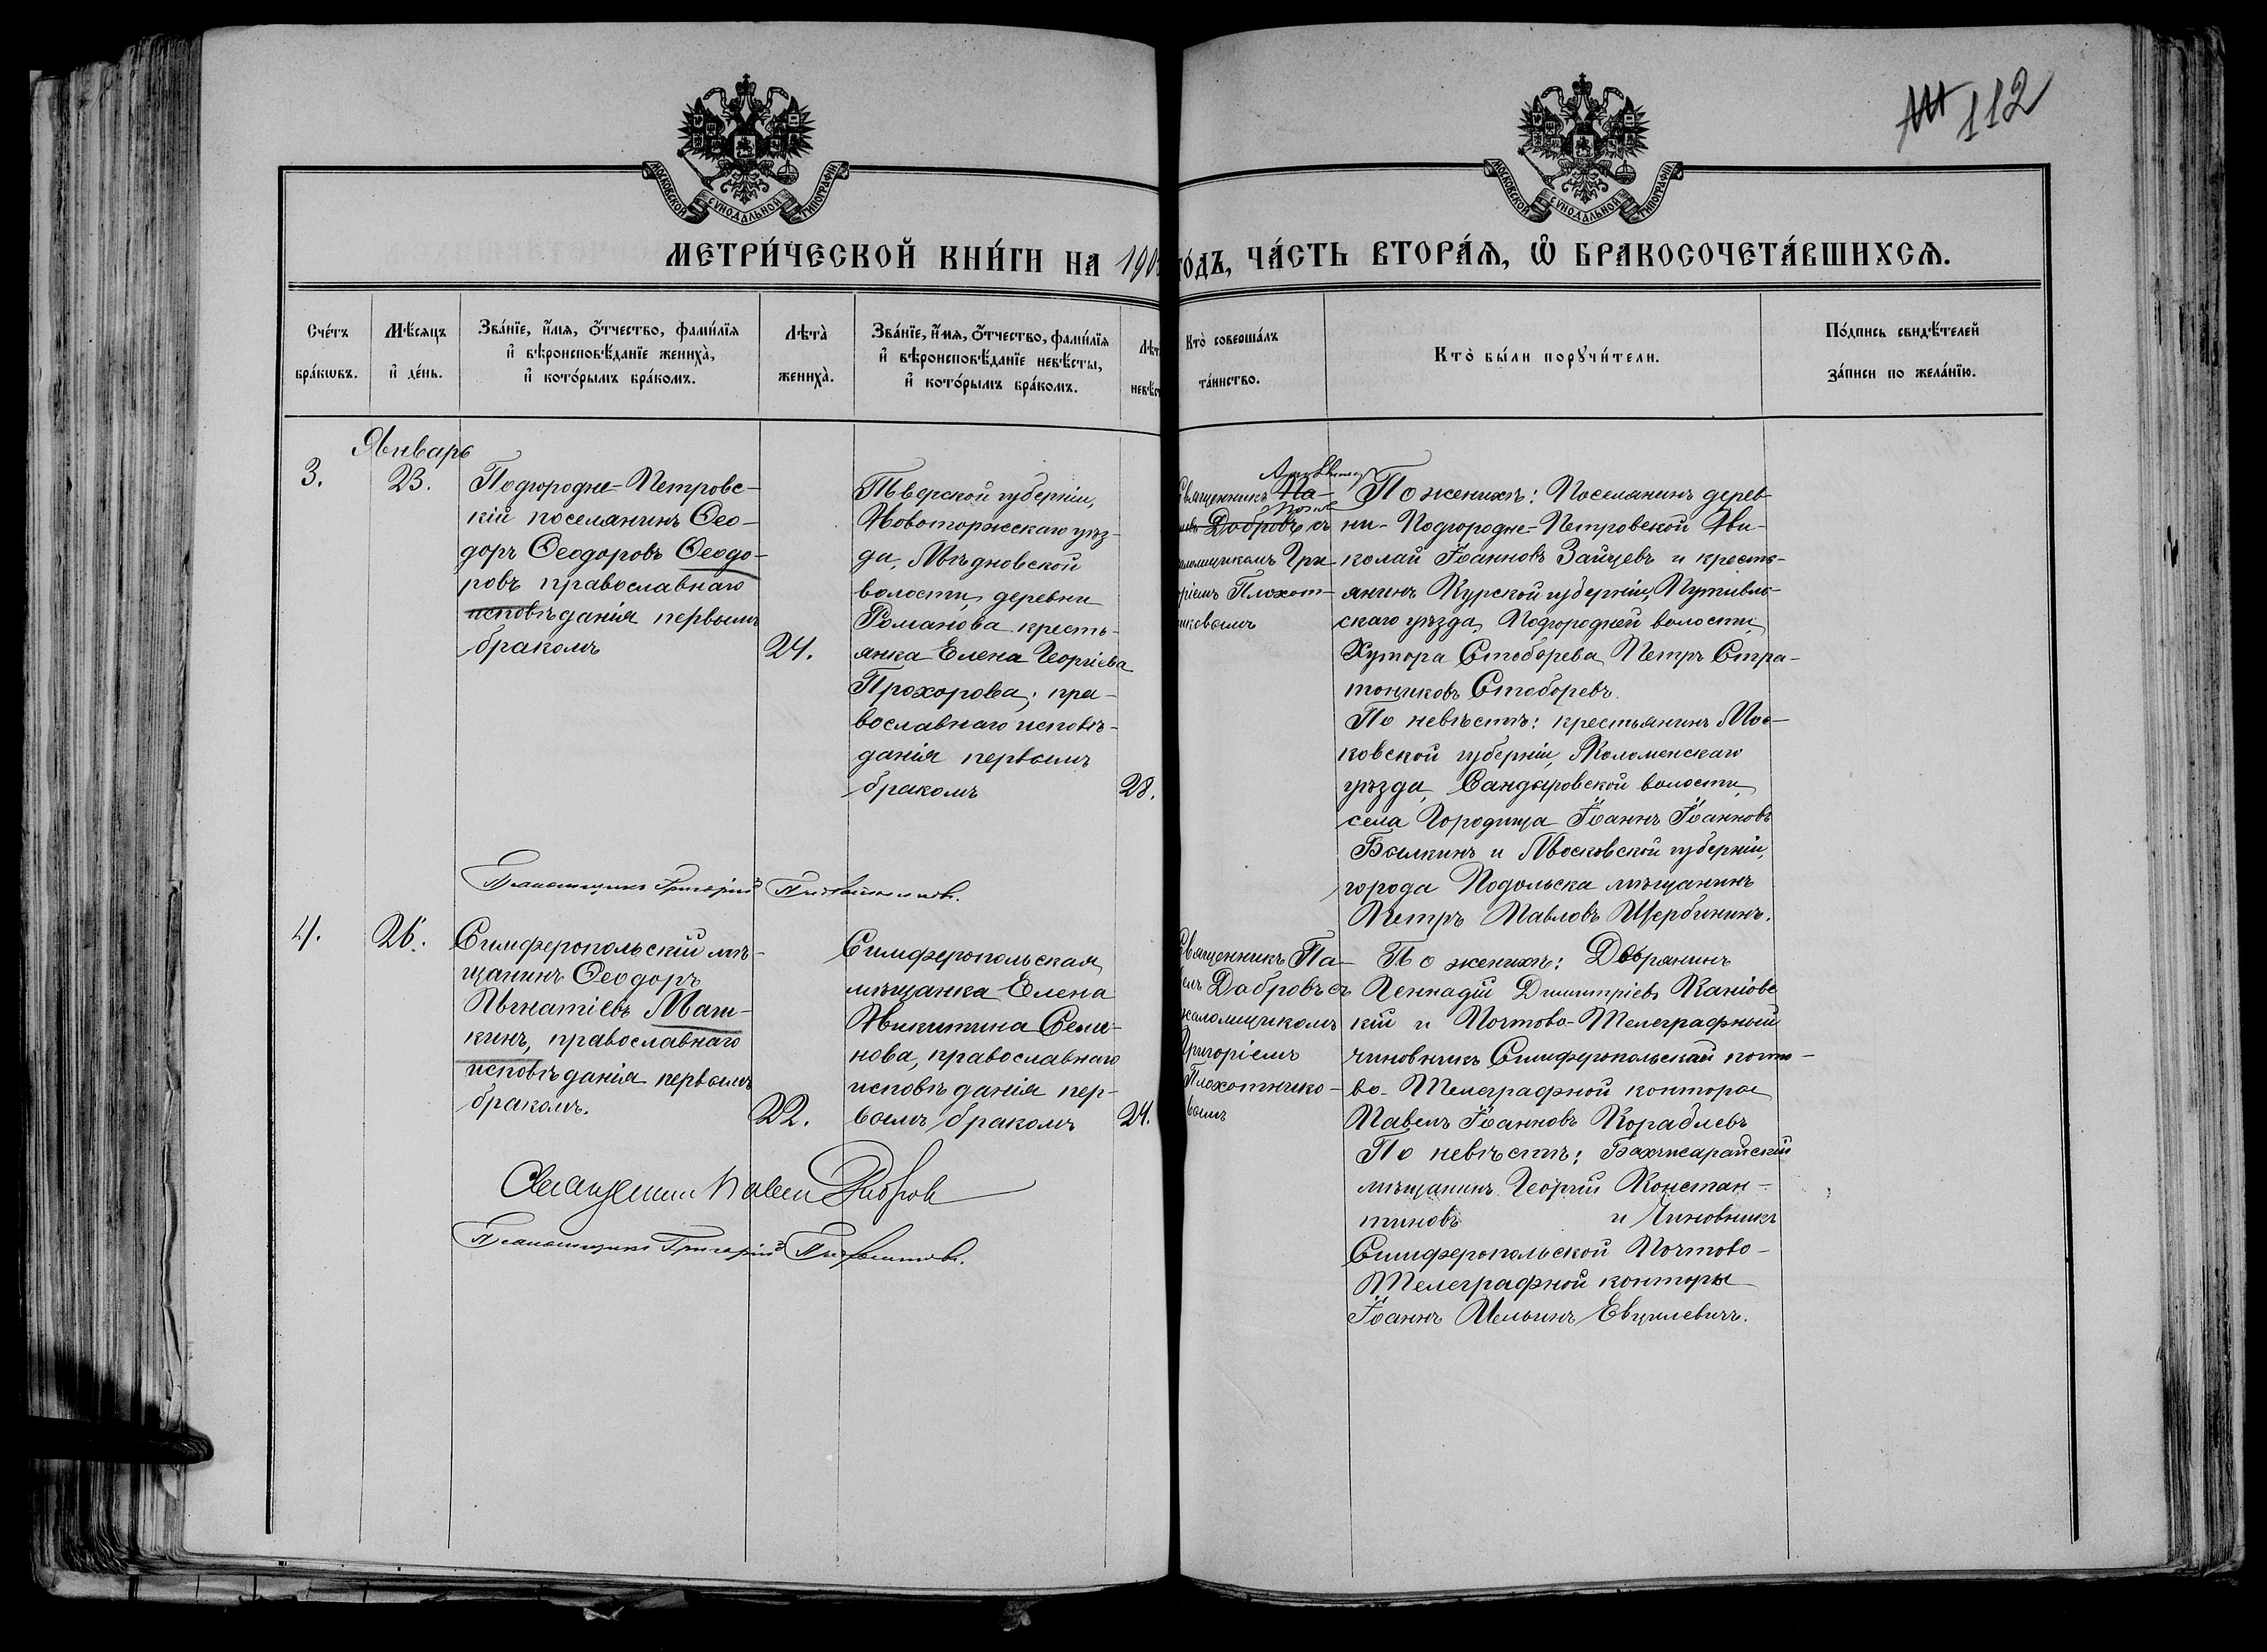 112
МОСКОВСКОЙ СѴНОДАЛЬНОЙ ТИПОГРАФІИ
МОСКОВСКОЙ СѴНОДАЛЬНОЙ ТИПОГРАФІИ
МЕТРИ́ЧЕСКОЙ КНИ́ГИ НА 190 ГО́ДЪ, ЧА́СТЬ ВТОРА́Я, Ѡ҆ БРАКОСОЧЕТА́ВШИХСЯ.
Сче́тъ
бра́кѡвъ.
Мѣ́сяцъ
и҆ де́нь.
Зва́нїе, и҆́мя, ѻ҆́тчество, фами́лїя
и҆ вѣроисповѣ́данїе жениха̀,
и҆ кото́рымъ бра́комъ.
Лѣта̀
жениха̀.
Зва́нїе, и҆́мя, ѻ҆́тчество, фами́лїя
и҆ вѣроисповѣ́данїе невѣ́сты,
и҆ кото́рымъ бра́комъ.
Кто̀ соверша́лъ
та́инство.
Кто̀ бы́ли порꙋчи́тели.
По́дпись свидѣ́телей
за́писи по жела́нїю.
3.
Январь
23.
Подгородне-Петровс-
кій поселянинъ Ѳео-
доръ Ѳеодоровъ Ѳеодо-
ровъ православнаго
исповѣданія первымъ
бракомъ
24.
Тверской губерніи,
Новоторжскаго уѣз-
да, Мѣдновской
волости, деревни
Романова кресть-
янка Елена Георгіева
Прохорова, пра-
вославнаго исповѣ-
данія первымъ
бракомъ
28.
Священникъ Па-
Добровъ съ
Гри-
Плохот-
никовымъ
По женихѣ: Поселянинъ дерев-
ни Подгородне-Петровской Ни-
колай Іоанновъ Зайцевъ и кресть-
янинъ Курской губерніи, Путивль-
скаго уѣзда, Подгородней волости,
Хутора Стоборева Петръ Стра-
тониковъ Стоборевъ.
По невѣстѣ: крестьянинъ Мос-
ковской губерніи, Коломенскаго
уѣзда, Сандыровской волости,
села Городища Іоаннъ Іоанновъ
Былкинъ и Московской губерніи,
города Подольска мѣщанинъ
Петръ Павловъ Щербининъ.
Псаломщикъ Григорій Плохотниковъ.
4.
26.
Симферопольскій мѣ-
щанинъ Ѳеодоръ
Игнатіевъ Маш-
кинъ, православнаго
исповѣданія первымъ
бракомъ.
22.
Симферопольская
мѣщанка Елена
Никитина Семе-
нова, православнаго
исповѣданія пер-
вымъ бракомъ
24.
Священникъ Па-
велъ Добровъ съ
псаломщикомъ
Григоріемъ
Плохотнико-
вымъ
По женихѣ: Дворянинъ
Геннадій Димитріевъ Каніовс
кій и Почтово-Телеграфный
чиновникъ Симферопольской почто-
во-Телеграфной конторы
Павелъ Іоанновъ Кораблевъ
По невѣстѣ: Бахчисарайскій
мѣщанинъ Георгій Констан-
тиновъ и Чиновникъ
Симферопольской Почтово-
Телеграфной конторы
Іоаннъ Ильинъ Евцилевичъ.
Священникъ Павелъ Добровъ
Псаломщикъ Григорій Плохотниковъ.